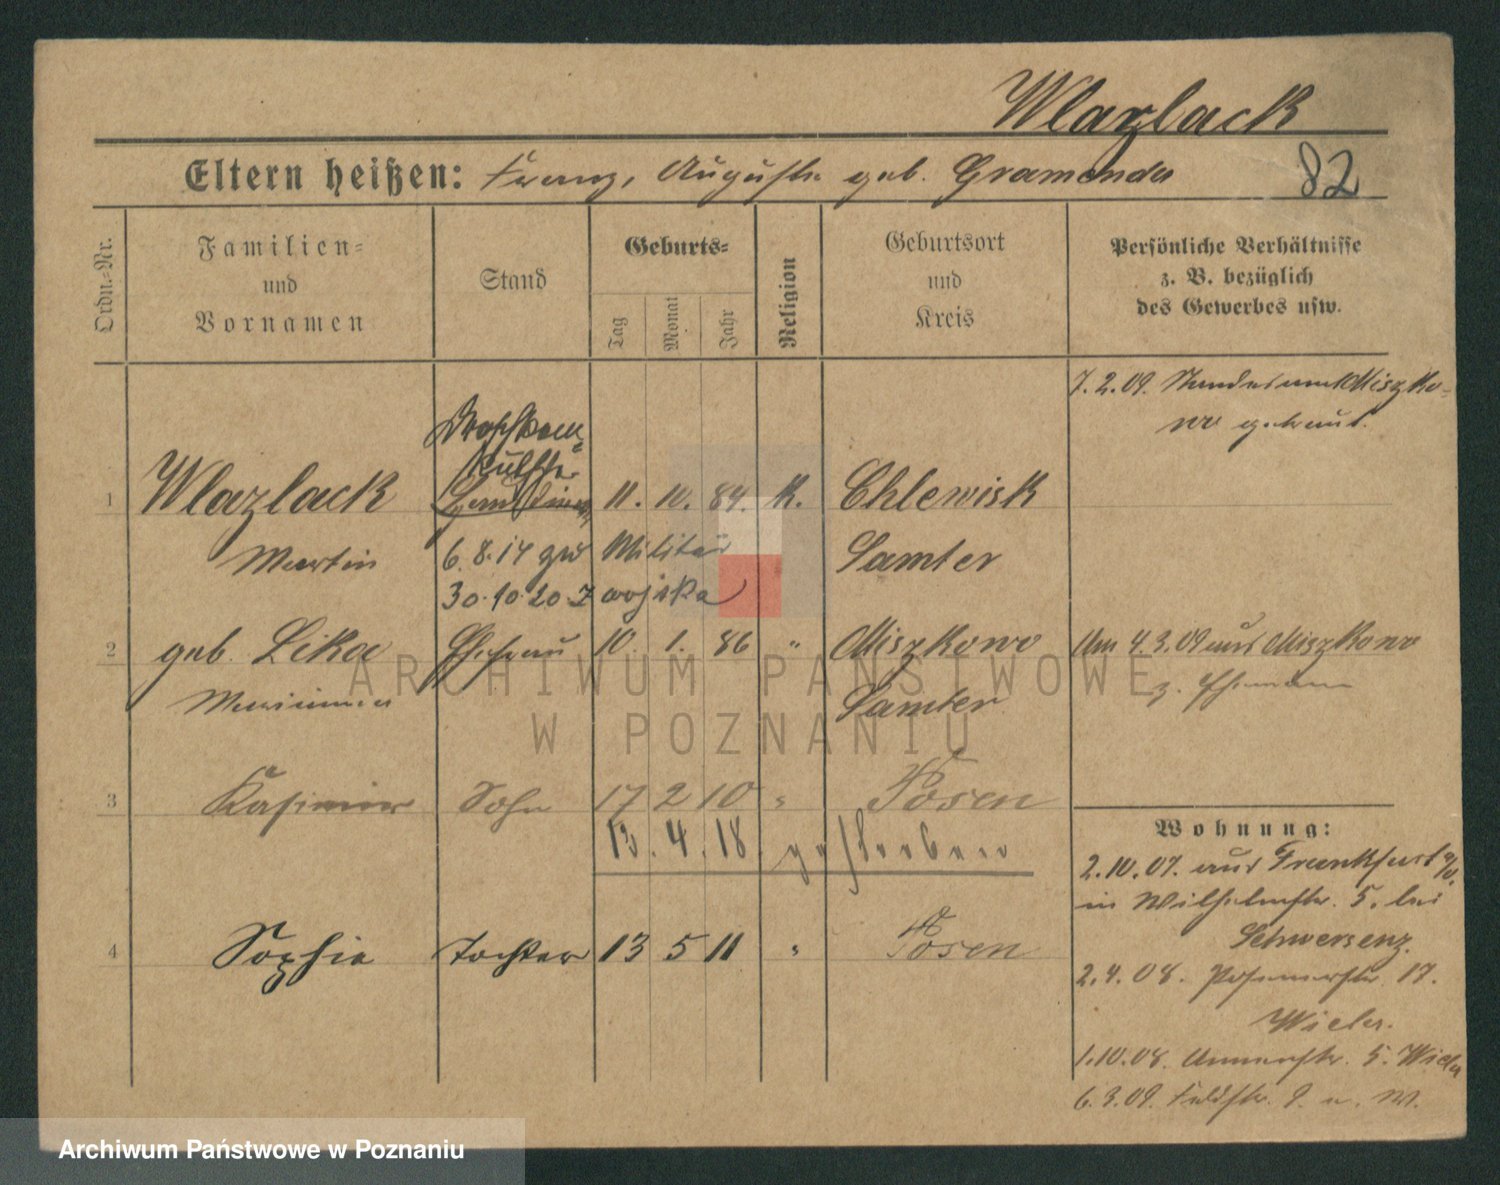 Wlazlack
Eltern heißen: Franz, Auguste geb. Gramenda 82
Ordn.-Nr.
Familien-
und
Vornamen
Stand
Geburts-
Tag
Monat
Jahr
Religion
Geburtsort
und
Kreis
Persönliche Verhältnisse
z. B. bezüglich
des Gewerbes usw.
7.2.09. Standesamt Miszko-
wo getraut.
Droschken-
kutscher
1 Wlazlack Haus diener 11. 10. 84. K. Chlewisk
Martin 6.8.14 zum Militär Samter
30.10.20 z wojska
2 geb. Lika Ehefrau 10. 1. 86 " Miszkowo Am 4.3.09 aus Miszkowo
Marianna Samter z. Ehemann
3 Kasimir Sohn 17 2 10 " Posen
13. 4. 18. gestorben
4 Sophie Tochter 13 5 11 " Posen
Wohnung:
2.10.07. aus Frankfurt a/O.
in Wilhelmstr. 5. bei
Schwersenz.
2.4.08. Posenerstr. 17.
Wieler.
1.10.08. Annenstr. 5. Wieler
6.3.09. Feldstr. 9. u. W.
ARCHIWUM PAŃSTWOWE
W POZNANIU
Archiwum Państwowe w Poznaniu